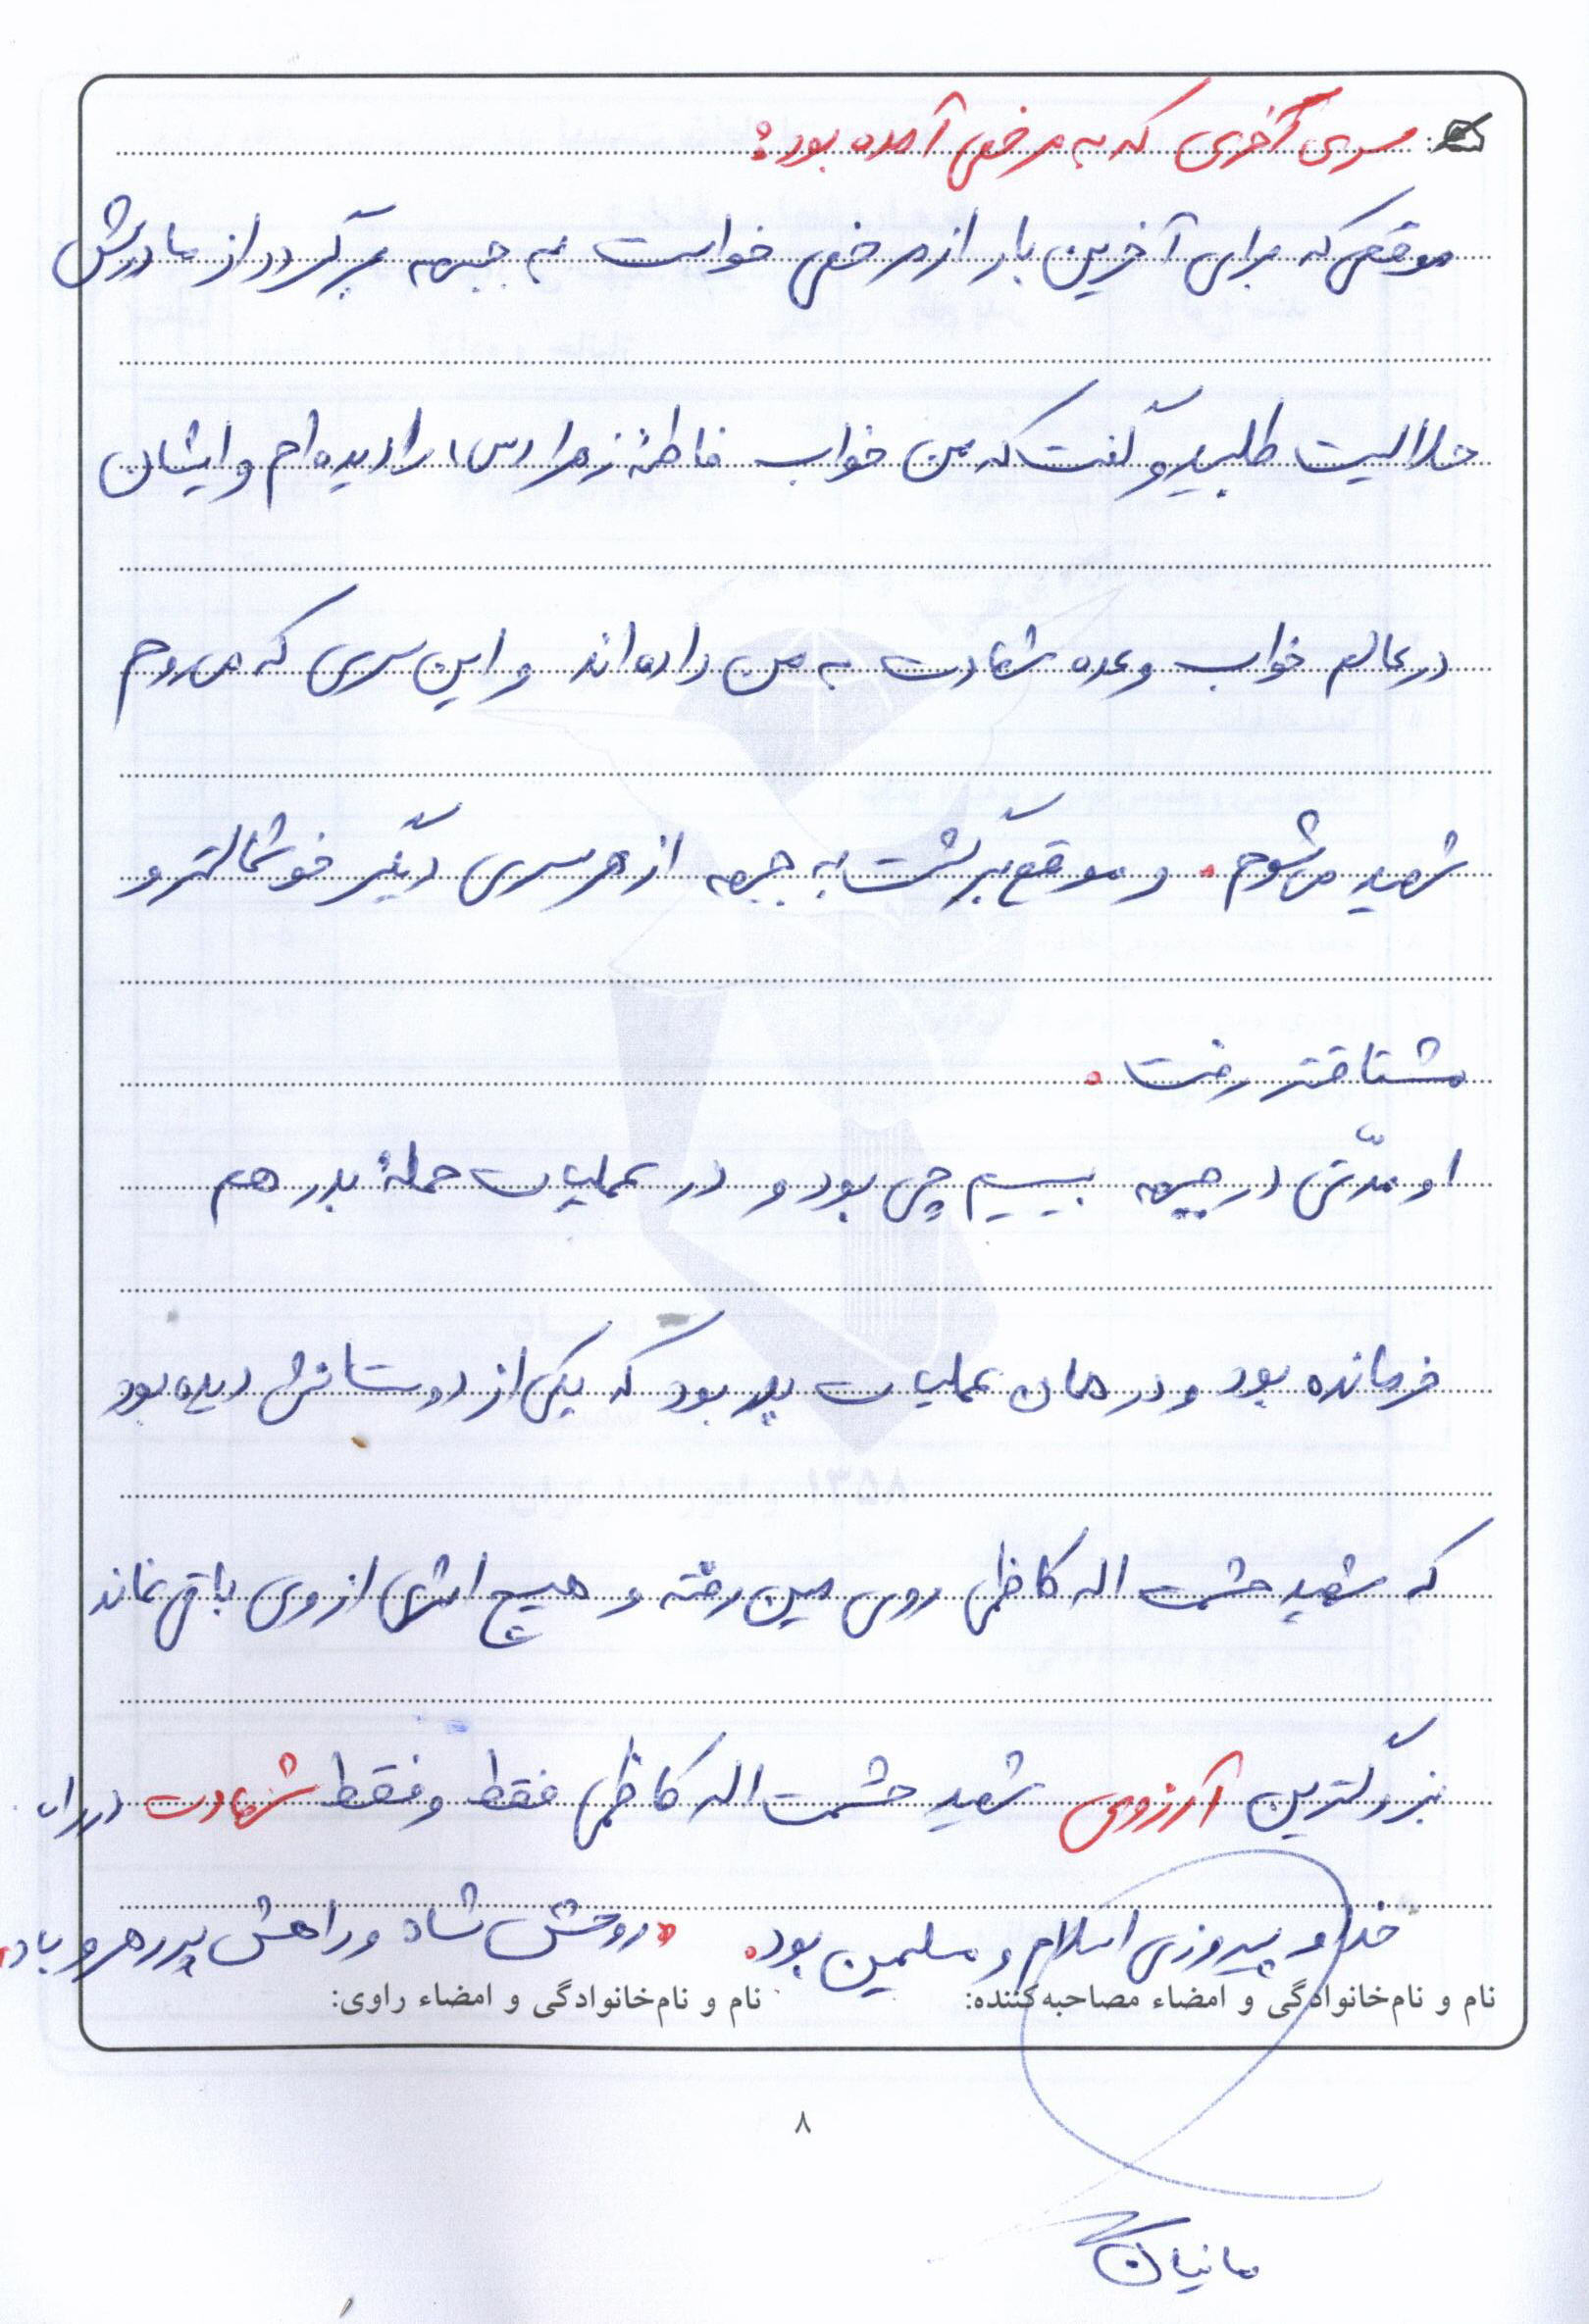 سری آخری که به مرخصی آمده بود:
موقعی که برای آخرین بار از مرخصی خواست به جبهه برگردد از مادرش
حلالیت طلبید و گفت که من خواب فاطمهٔ زهرا (س) را دیده‌ام و ایشان
در عالم خواب وعده شهادت به من داده‌اند و این سری که می‌روم
شهید می‌شوم. و موقع برگشت به جبهه از هر سری دیگر خوشحالتر و
مشتاقتر رفت.
او مدّتی در جبهه بیسیم چی بود و در عملیات حملهٔ بدر هم
فرمانده بود و در همان عملیات بدر بود که یکی از دوستانش دیده بود
که شهید حشمت اله کاظمی روی مین رفته و هیچ اثری از وی باقی نماند
بزرگترین آرزوی شهید حشمت اله کاظمی فقط و فقط شهادت در راه
خدا و پیروزی اسلام و مسلمین بود. روحش شاد و راهش پر رهرو باد.
نام و نام‌خانوادگی و امضاء مصاحبه‌کننده: نام و نام‌خانوادگی و امضاء راوی:
۸
مانیان